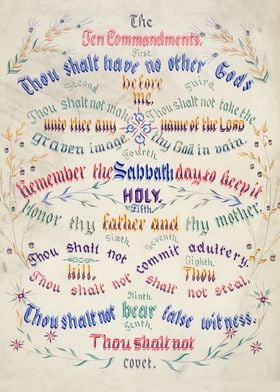 The
Ten Commandments.
First.
Thou shalt have no other Gods
before
me.
Second.
Thou shalt not make
unto thee any
graven image.
Third.
Thou shalt not take the
name of the LORD
thy God in vain.
Fourth.
Remember the Sabbath day to keep it
HOLY.
Fifth.
Honor thy father and thy mother.
Sixth.
Thou shalt not
kill.
Seventh.
Thou shalt not commit adultery.
Eighth.
Thou shalt not steal.
Ninth.
Thou shalt not bear false witness.
Tenth.
Thou shalt not
covet.